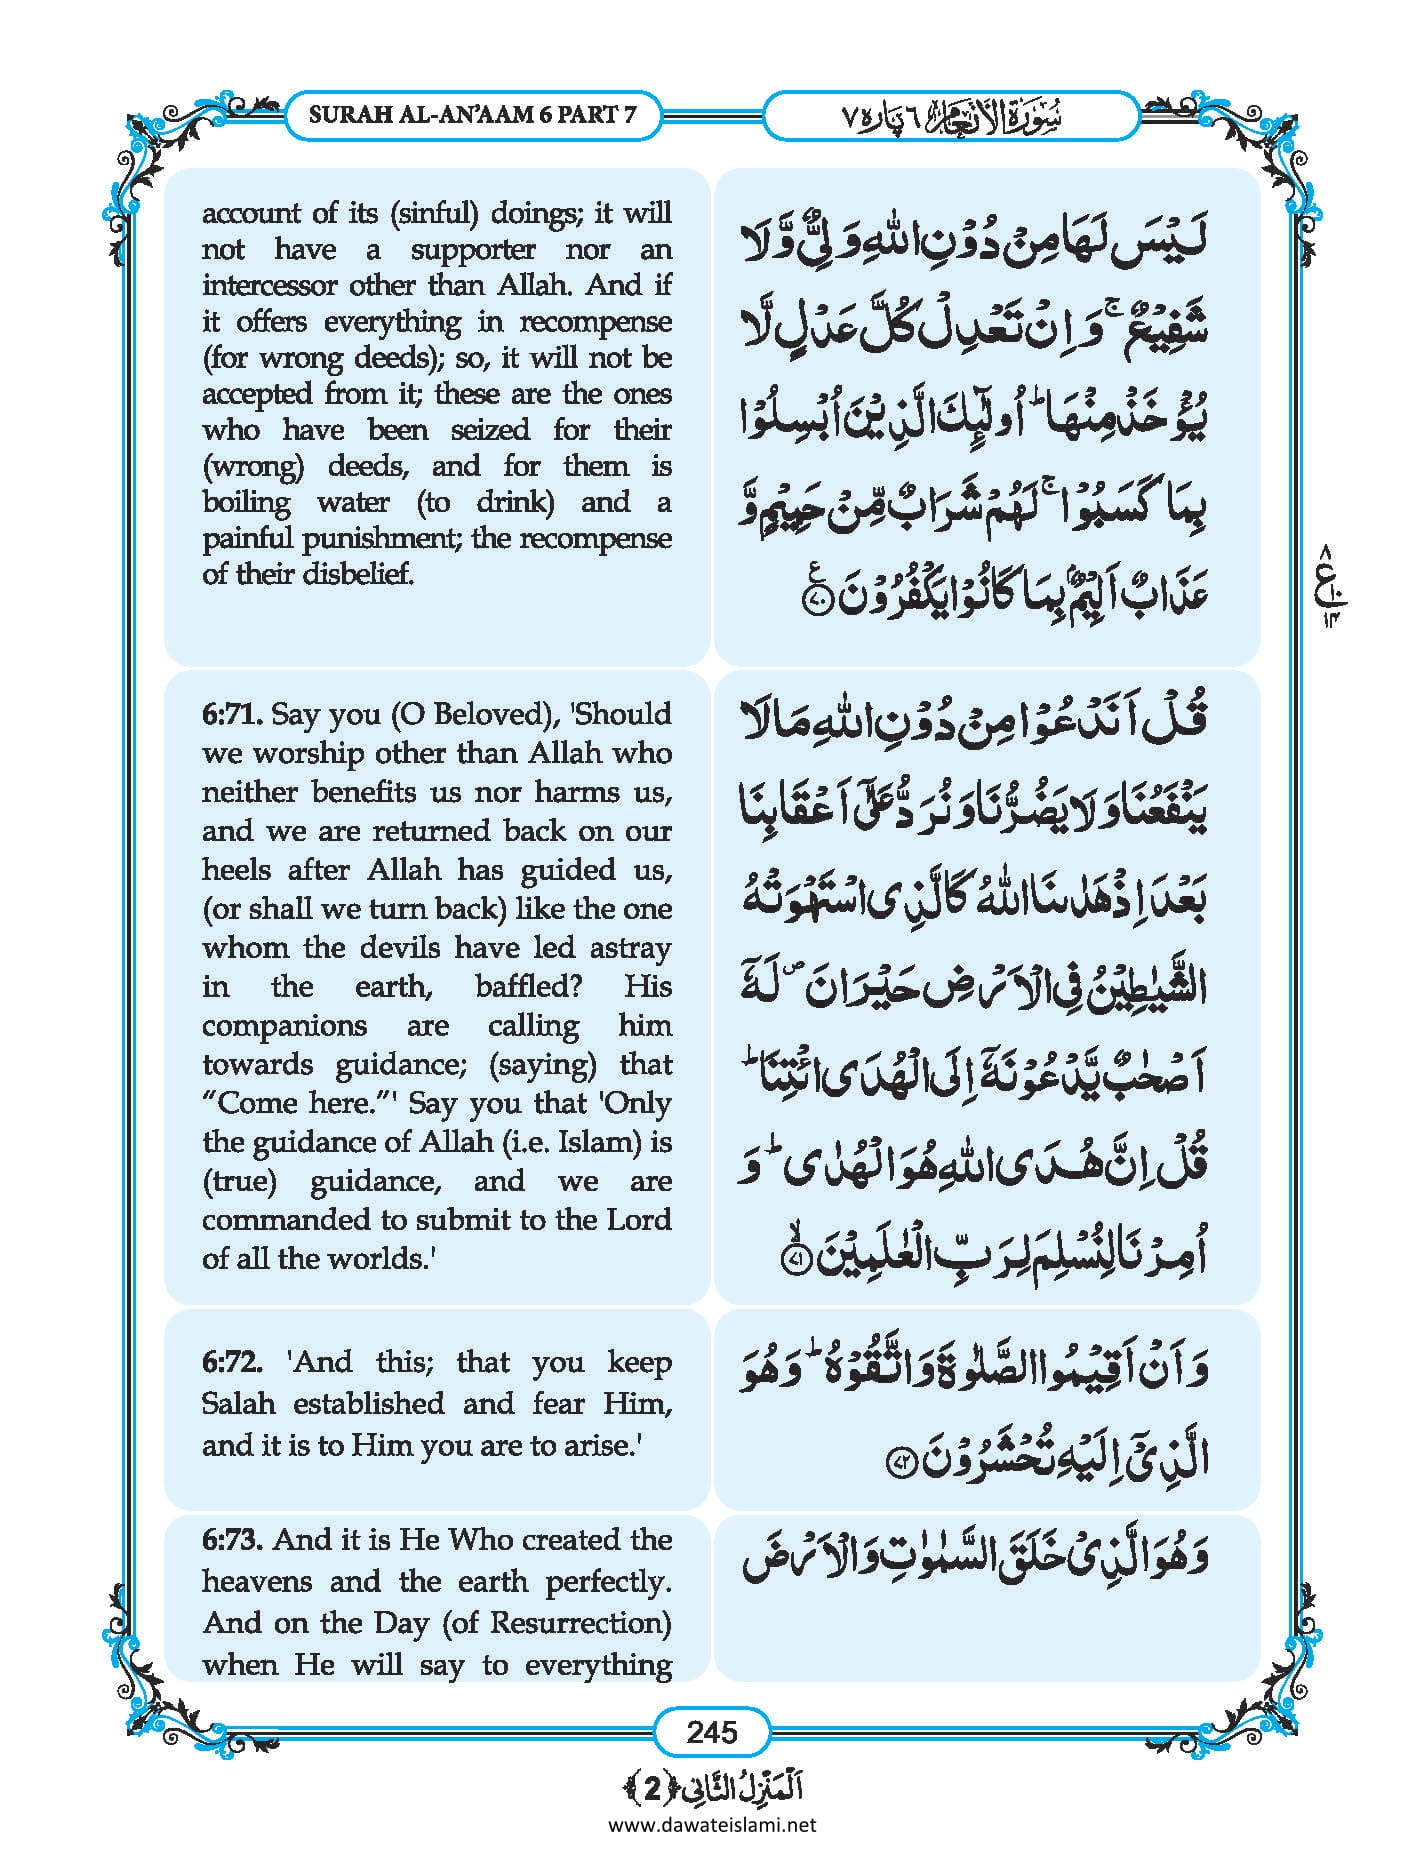 SURAH AL-AN’AAM 6 PART 7
سُوْرَةُ الْاَنْعَام ٦ پاره ٧
account of its (sinful) doings; it will
not have a supporter nor an
intercessor other than Allah. And if
it offers everything in recompense
(for wrong deeds); so, it will not be
accepted from it; these are the ones
who have been seized for their
(wrong) deeds, and for them is
boiling water (to drink) and a
painful punishment; the recompense
of their disbelief.
لَيْسَ لَهَا مِنْ دُوْنِ اللّٰهِ وَلِيٌّ وَّلَا
شَفِيْعٌ ۚ وَ اِنْ تَعْدِلْ كُلَّ عَدْلٍ لَّا
يُؤْخَذْ مِنْهَا ؕ اُولٰٓئِكَ الَّذِيْنَ اُبْسِلُوْا
بِمَا كَسَبُوْا ۚ لَهُمْ شَرَابٌ مِّنْ حَمِيْمٍ وَّ
عَذَابٌ اَلِيْمٌۢ بِمَا كَانُوْا يَكْفُرُوْنَ ﴿٧٠﴾ ع
٨
ع
١٠
١٤
6:71. Say you (O Beloved), 'Should
we worship other than Allah who
neither benefits us nor harms us,
and we are returned back on our
heels after Allah has guided us,
(or shall we turn back) like the one
whom the devils have led astray
in the earth, baffled? His
companions are calling him
towards guidance; (saying) that
“Come here.”' Say you that 'Only
the guidance of Allah (i.e. Islam) is
(true) guidance, and we are
commanded to submit to the Lord
of all the worlds.'
قُلْ اَنَدْعُوْا مِنْ دُوْنِ اللّٰهِ مَا لَا
يَنْفَعُنَا وَلَا يَضُرُّنَا وَنُرَدُّ عَلٰٓى اَعْقَابِنَا
بَعْدَ اِذْ هَدٰىنَا اللّٰهُ كَالَّذِى اسْتَهْوَتْهُ
الشَّيٰطِيْنُ فِى الْاَرْضِ حَيْرَانَ ۪ لَهٗۤ
اَصْحٰبٌ يَّدْعُوْنَهٗۤ اِلَى الْهُدَى ائْتِنَا ؕ
قُلْ اِنَّ هُدَى اللّٰهِ هُوَ الْهُدٰى ؕ وَ
اُمِرْنَا لِنُسْلِمَ لِرَبِّ الْعٰلَمِيْنَ ﴿٧١﴾ ۙ
6:72. 'And this; that you keep
Salah established and fear Him,
and it is to Him you are to arise.'
وَ اَنْ اَقِيْمُوا الصَّلٰوةَ وَ اتَّقُوْهُ ؕ وَهُوَ
الَّذِيْۤ اِلَيْهِ تُحْشَرُوْنَ ﴿٧٢﴾
6:73. And it is He Who created the
heavens and the earth perfectly.
And on the Day (of Resurrection)
when He will say to everything
وَهُوَ الَّذِيْ خَلَقَ السَّمٰوٰتِ وَ الْاَرْضَ
245
اَلْمَنْزِلُ الثَّانِى ﴿2﴾
www.dawateislami.net